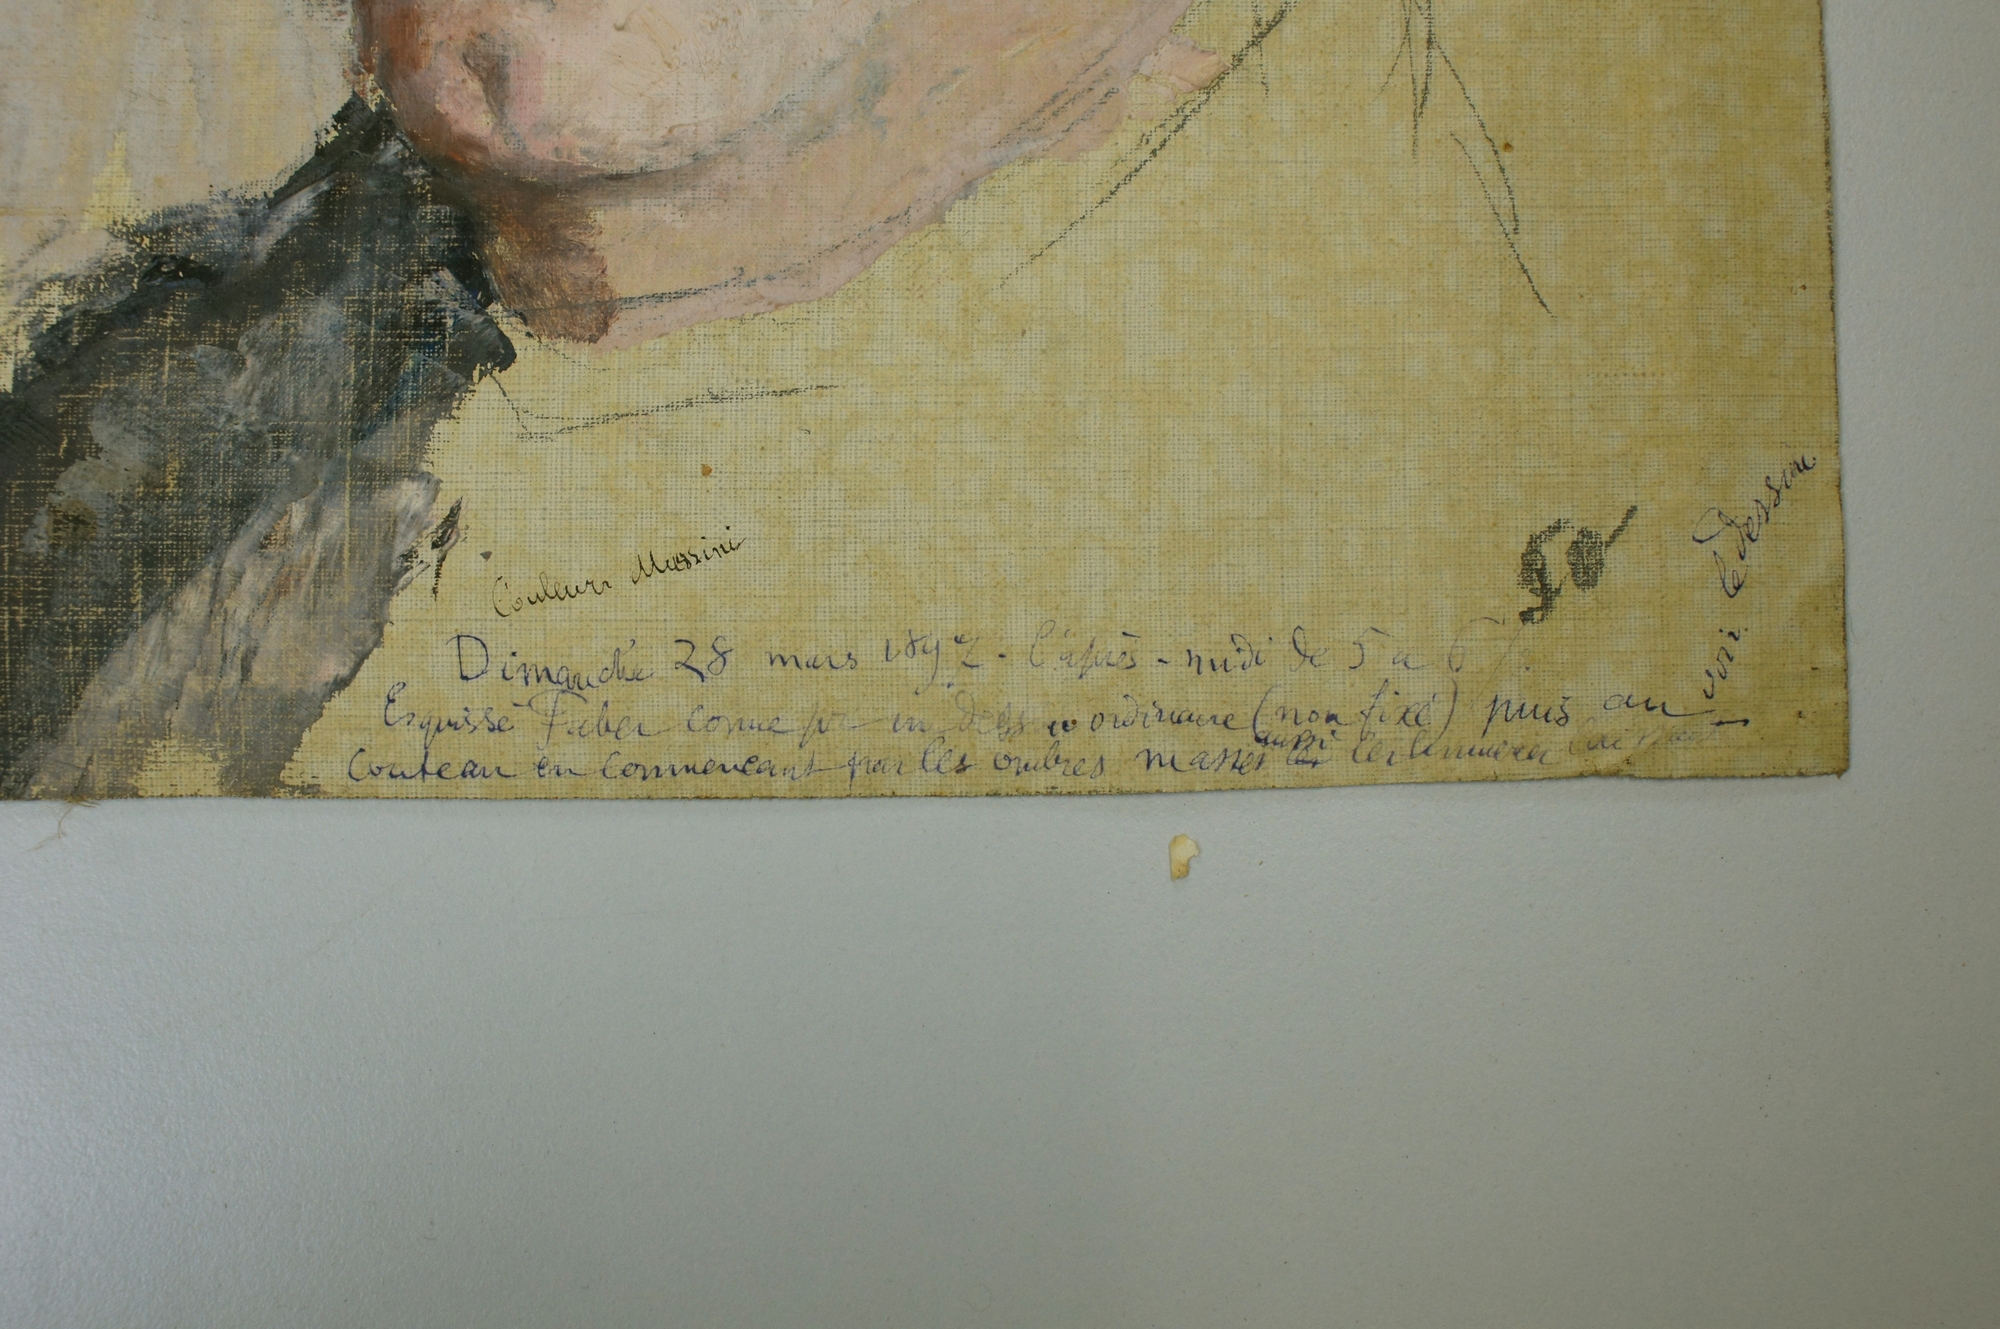 Couleurs Mussini
50
voir le dessin
Dimanche 28 mars 1897 - l'après-midi de 5 a 6
Esquisse Faber comme un ordinaire (non fixé) puis au
Couteau en commencant par les ombres masses aussi les lumières